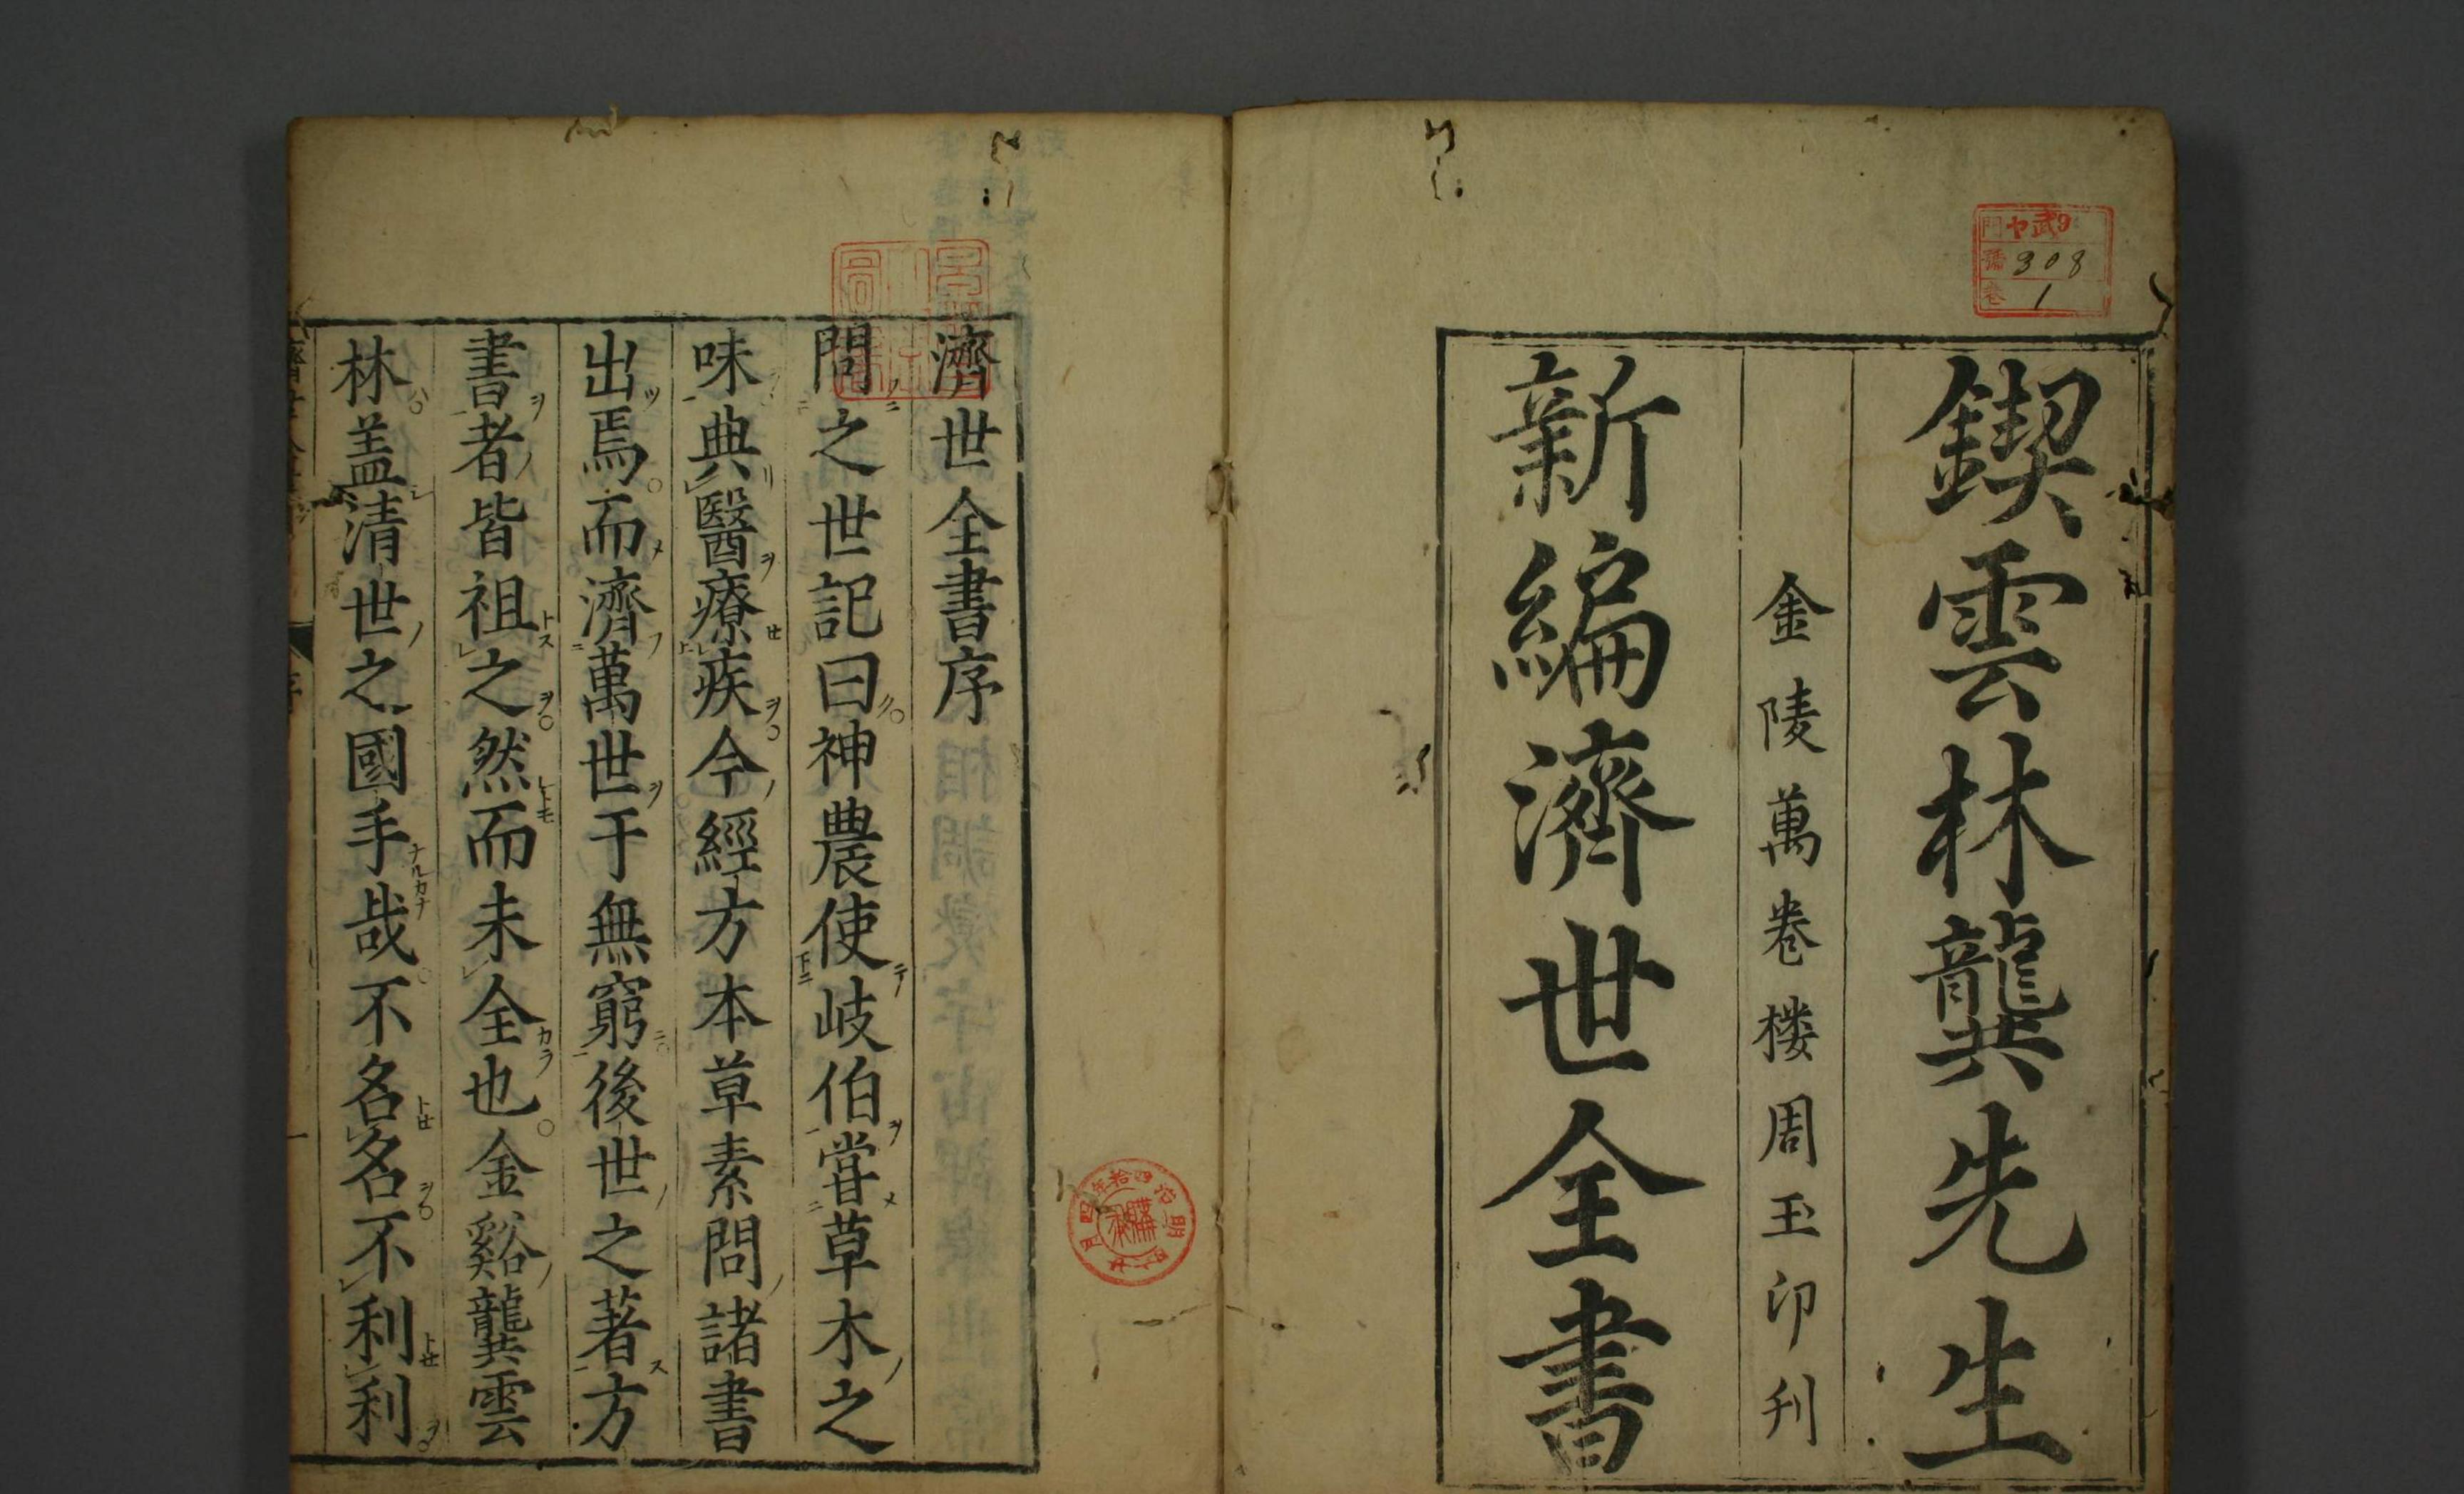 鍥雲林龔先生
金陵萬卷楼周玉卬刋
新編濟世全書
門 ヤ武9
號 308
卷 1
濟世全書序
問之世記曰神農使岐伯嘗草木之
味典醫療疾今經方本草素問諸書
出焉而濟萬世于無窮後世之著方
書者皆祖之然而未全也金谿龔雲
林盖清世之國手哉不名名不利利